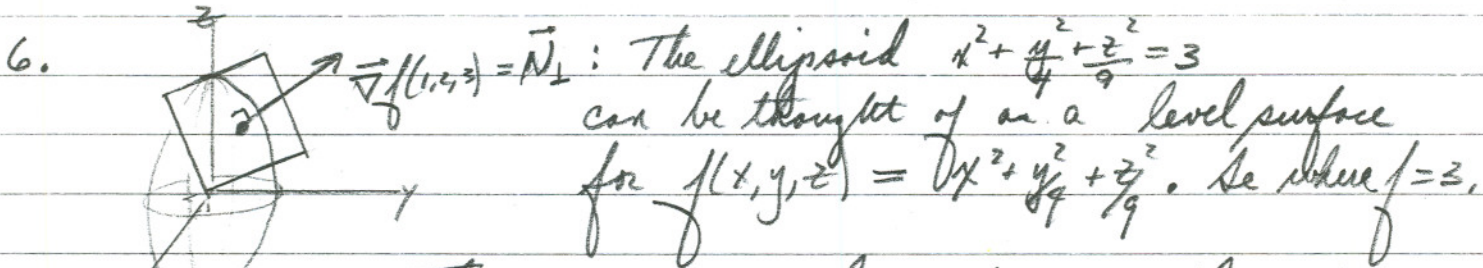 z
6. ∇f(1,2,3) = N⊥ : The ellipsoid x² + y²/4 + z²/9 = 3
can be thought of as a level surface
for f(x,y,z) = x² + y²/4 + z²/9. Ie where f=3.
y